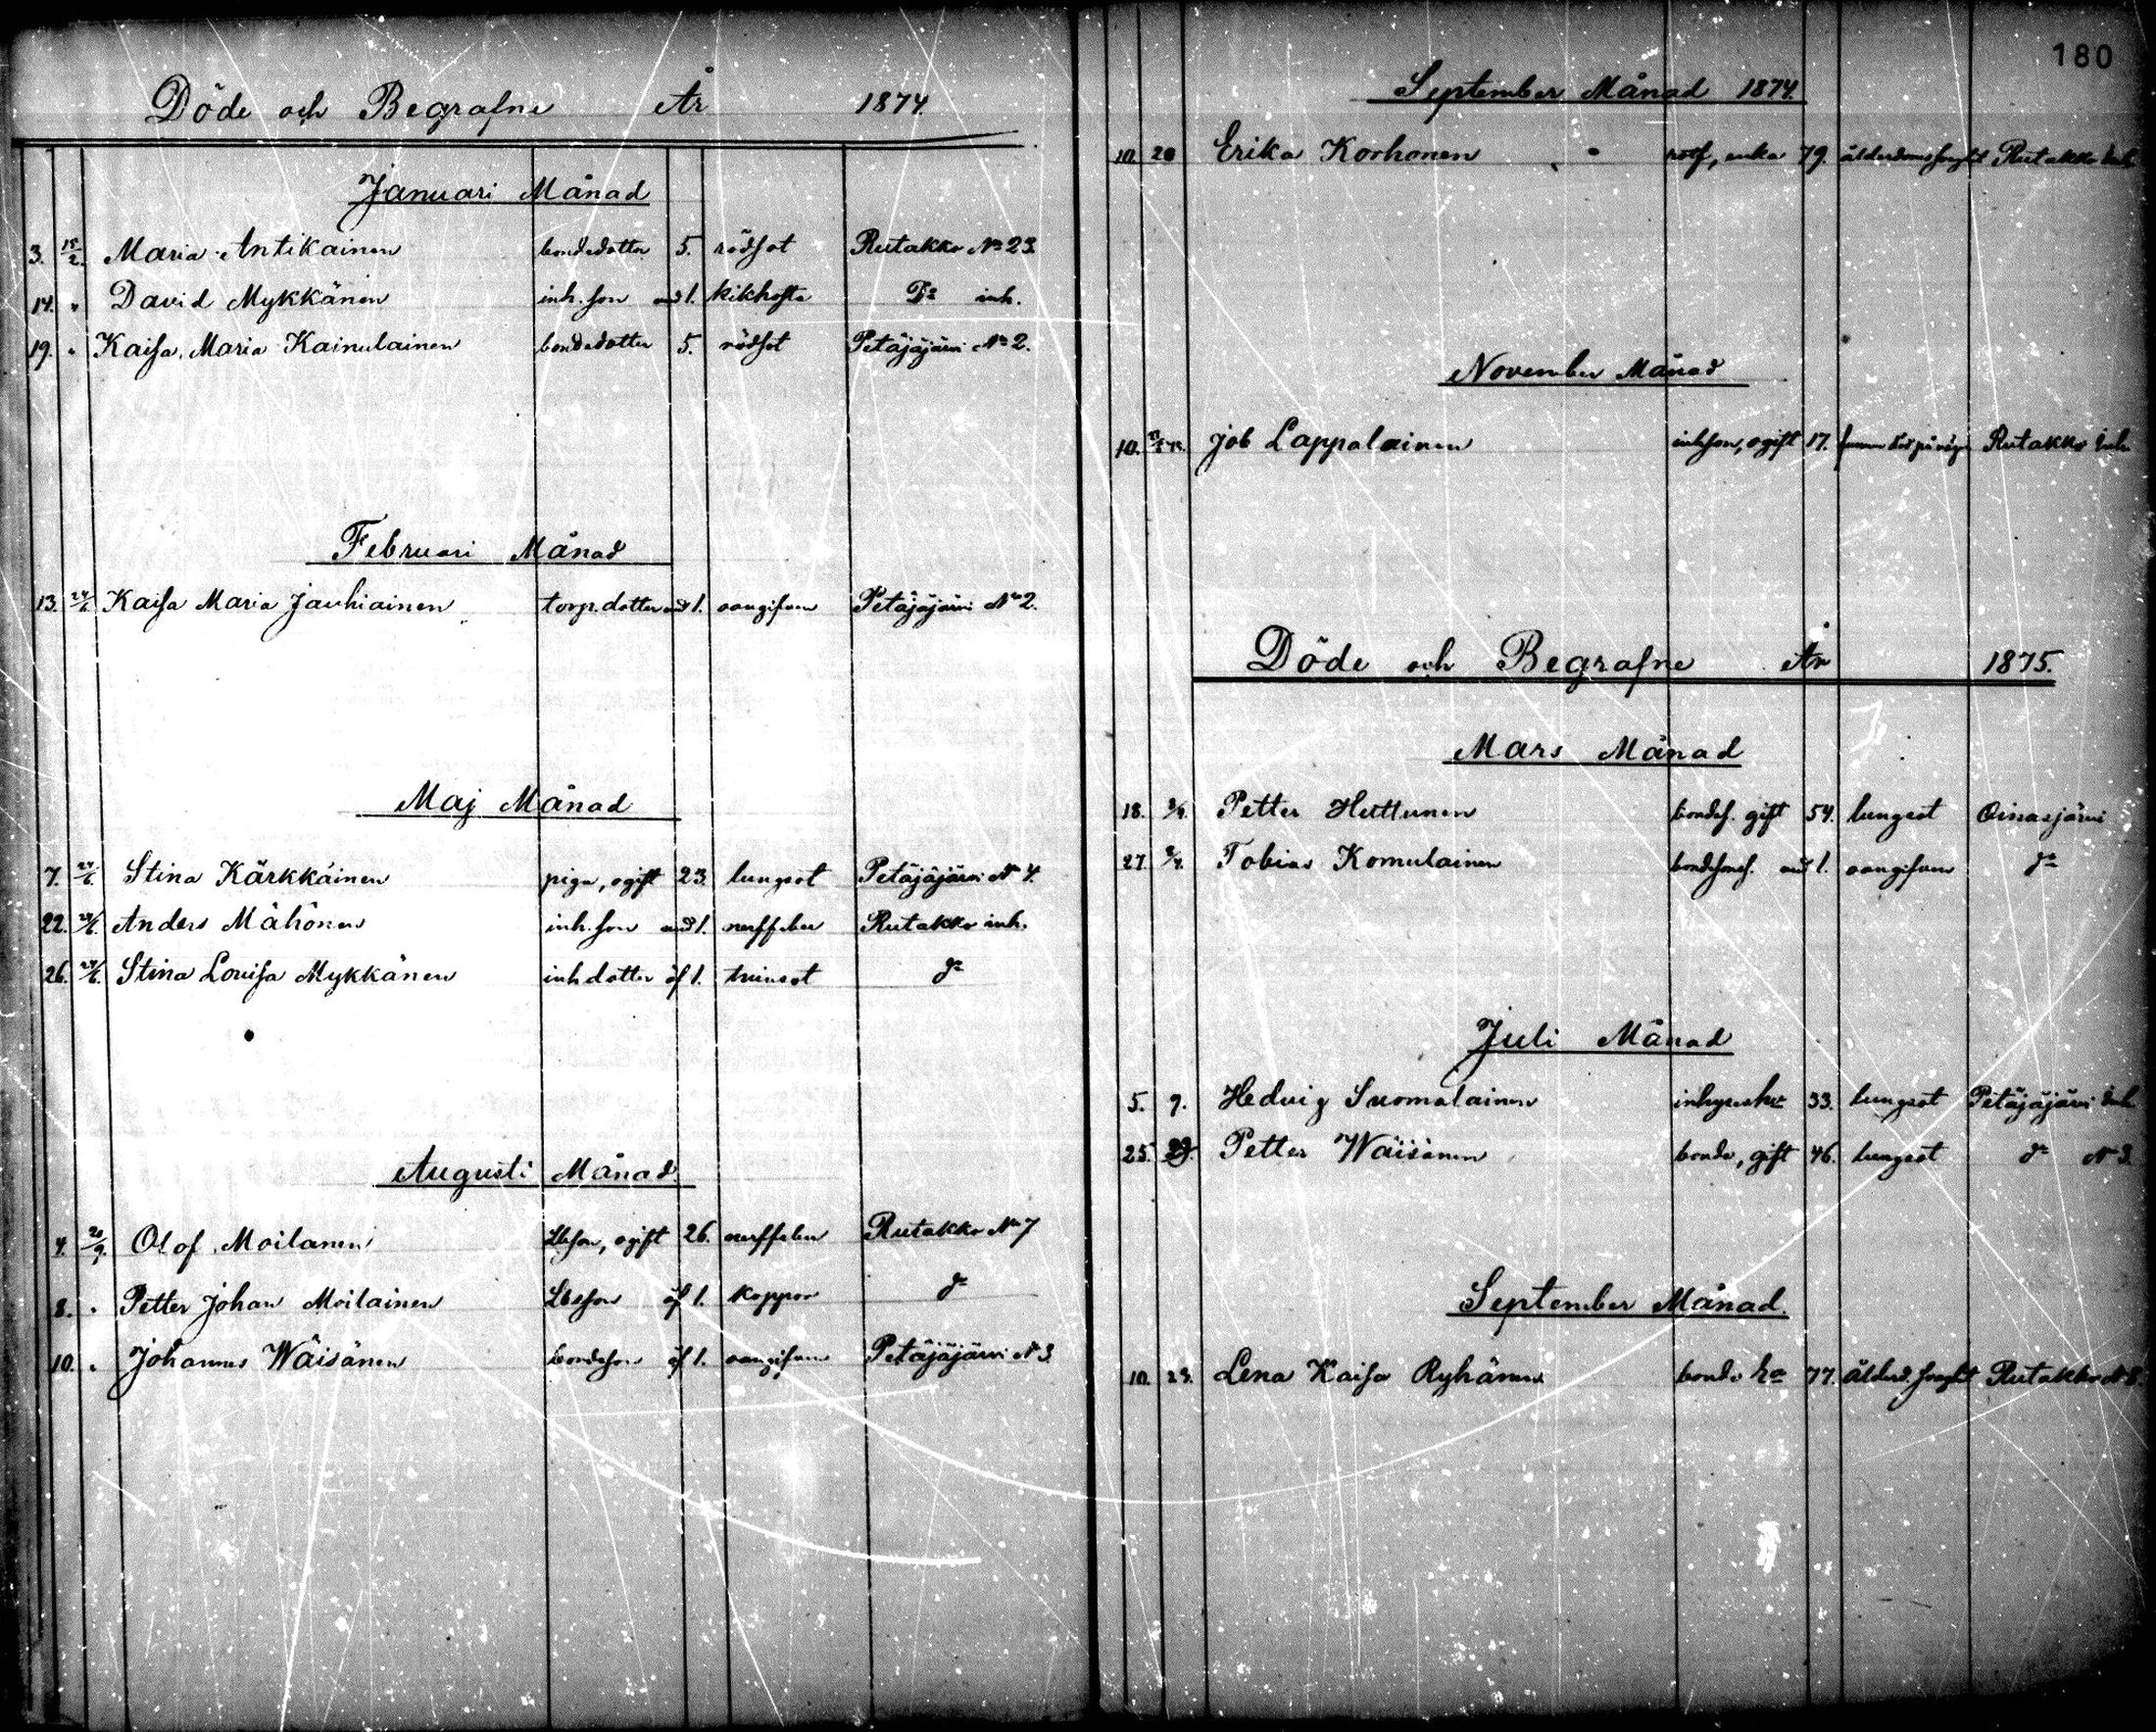 Döde och Begrafne År 1874.
Januari Månad
3. 15/2. Maria Antikainen bondedotter 5. rödsot Rutakko No 23.
14. " David Mykkänen inh. son und 1. kikhosta Do inh.
19. " Kaisa Maria Kainulainen bondedotter 5. rödsot Petäjäjärvi No 2.
Februari Månad
13. 24/5 Kaisa Maria Jauhiainen torp. dotter und 1. oangifven Petäjäjärvi No 2.
Maj Månad
7. 24/6. Stina Kärkkäinen piga, ogift 23. lungsot Petäjäjärvi No 4.
22. 24/6. Anders Mähönen inh. son und 1. nerffeber Rutakko inh.
26. 24/6. Stina Lovisa Mykkänen inh dotter öf 1. tvinsot do
Augusti Månad.
4. 20/9. Olof Moilanen Lbson, ogift 26. nerffeber Rutakko No 7
8. " Petter Johan Moilainen Lbsson öf 1. koppor do
10. " Johannes Wäisänen bondeson öf 1. oangifven Petäjäjärvi No 3.
180
September Månad 1874.
10. 20 Erika Korhonen rotf, enka 79. ålderdomssvaghet Rutakko Inh.
November Månad
10. Job Lappalainen inhson, ogift 17. funnen död på väg Rutakko Inh.
Döde och Begrafne År 1875.
Mars Månad
18. 3/4. Petter Huttunen bondes. gift 54. lungsot Oinasjärvi
27. 3/4. Tobias Komulainen bondesons. und 1. oangifven do
Juli Månad
5. 9. Hedvig Suomalainen inhyseshu 33. lungsot Petäjäjärvi Inh.
25. Petter Wäisänen bonde, gift 46. lungsot do No 3.
September Månad.
10. 23. Lena Kaisa Ryhänen bonde ha 77. ålderd. svaghet Rutakko No 8.